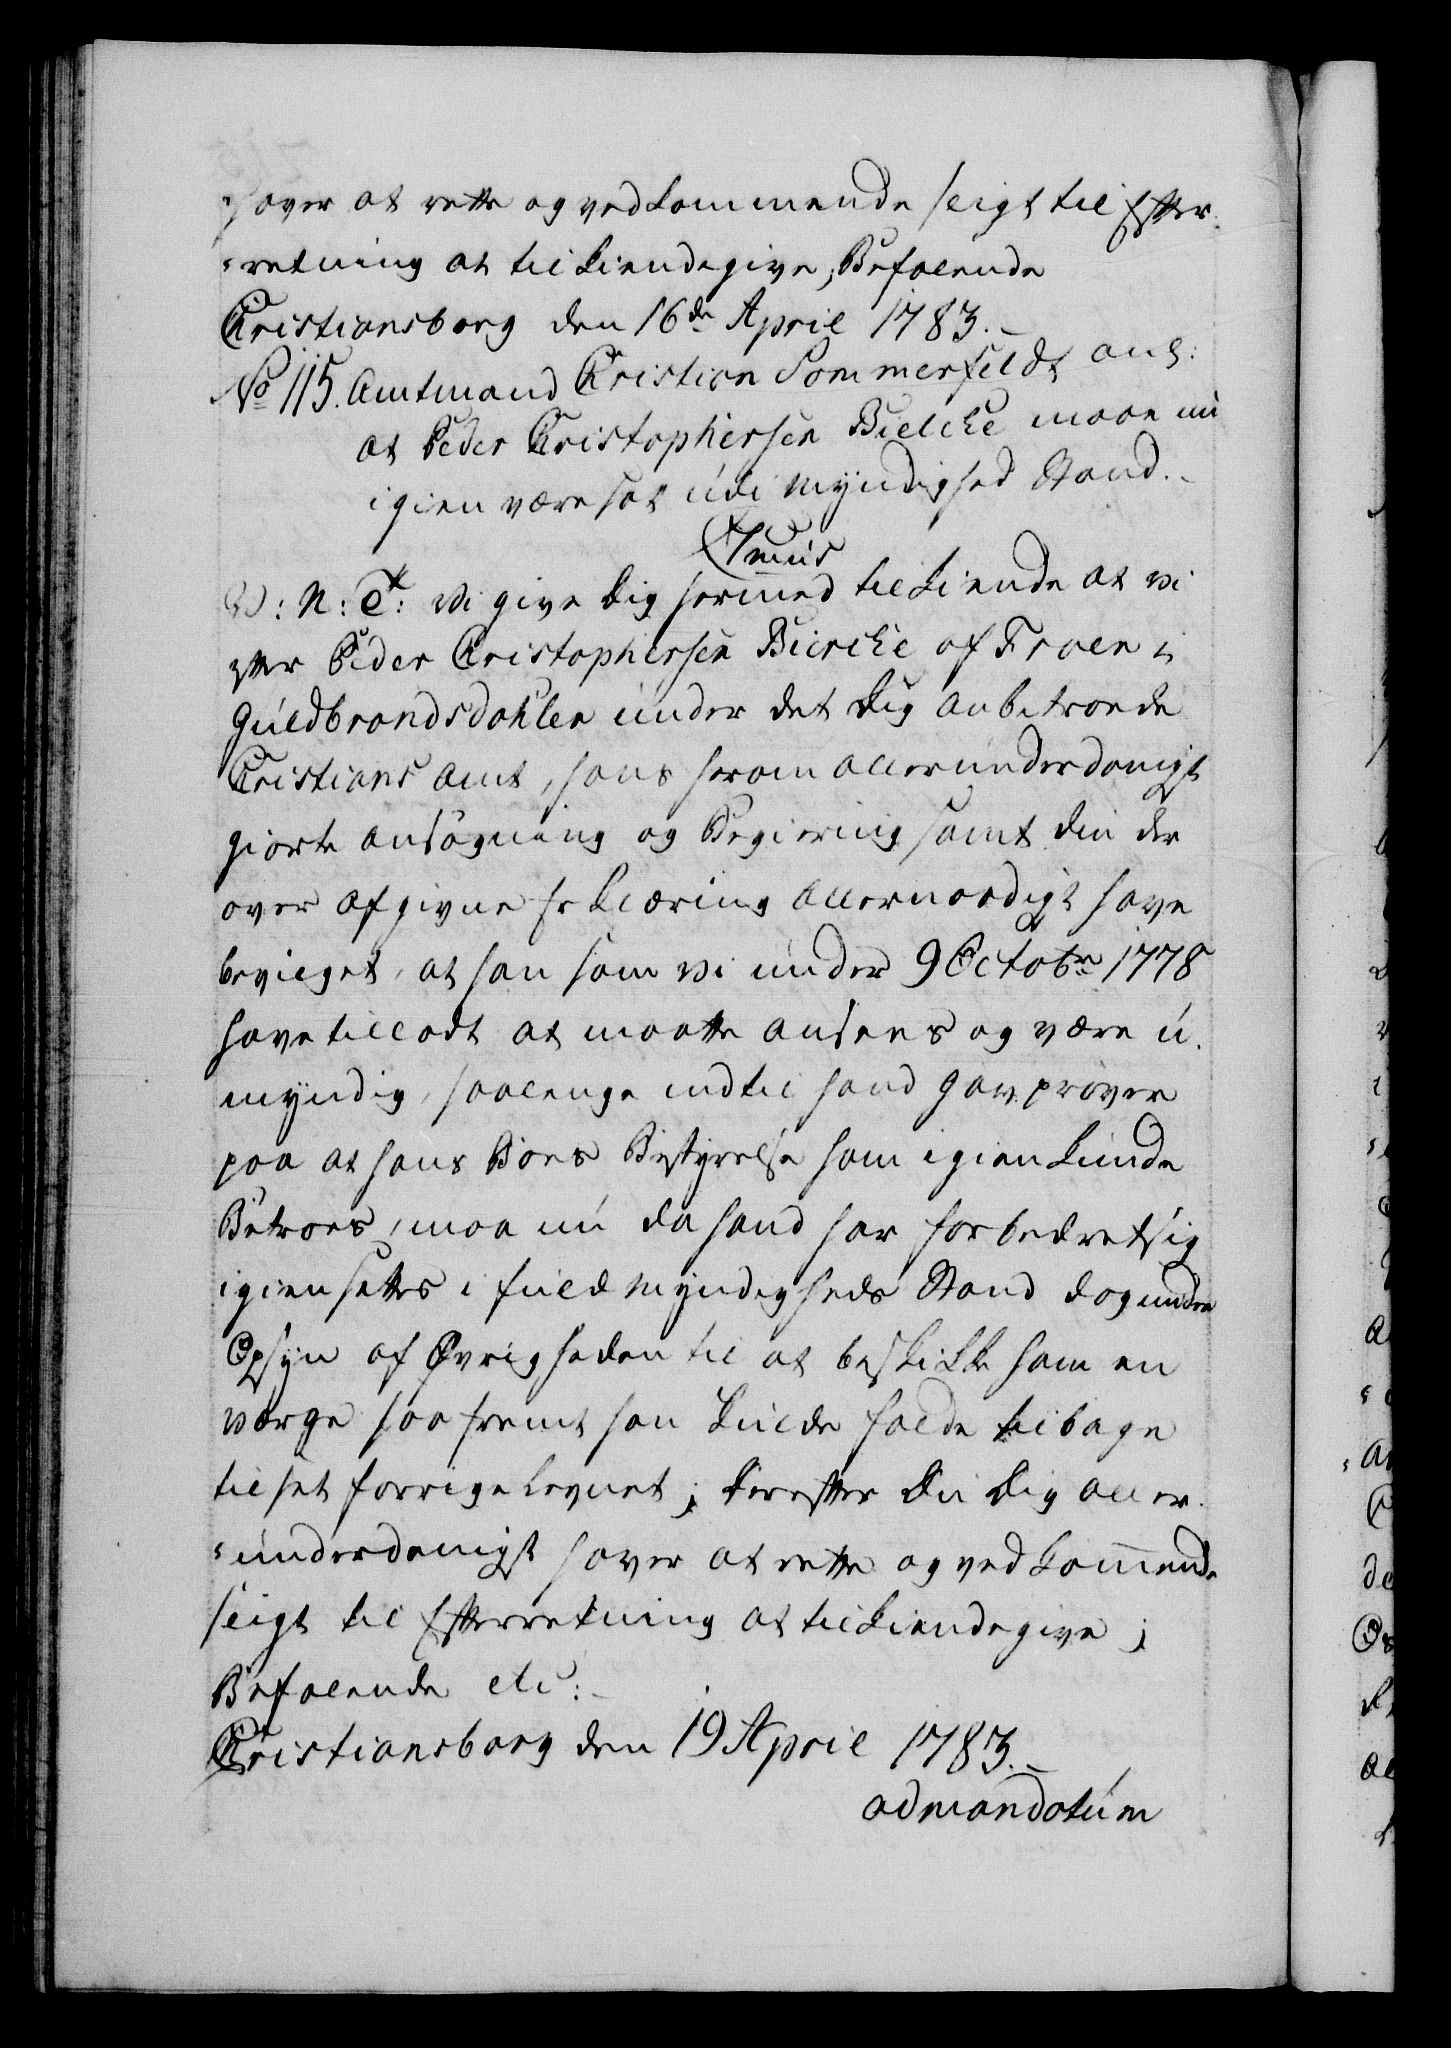 haver at rette og vedkommende sligt til Efter-
-retning at tilkiendegive; Befalende
Cristiansborg den 16de April 1783.
No 115. Amtmand Cristian Sommerfeldt anl:
at Peder Cristophersen Bielche maae nu
igien være sat udi Myndighed Stand.
C7mus
V: N: C7: Vi give Dig hermed tilkiende at vi
efter Peder Cristophersen Bierche af Froen i
Guldbrandsdahlen under det Dig anbetroede
Cristians Amt, hans herom allerunderdanigst
giorte ansøgning og Begiering samt din der
over afgivne Erklæring allernaadigst have
bevilget, at han som vi under 9 Octobr 1778
have tilladt at maatte ansees og være u-
myndig, saalenge indtil hand gav prøver
paa at hans Boes Bestyrelse ham igien kunde
Betroes, maa nu da hand har forbedret sig
igien settes i fuld Myndigheds Stand dog under
Opsyn af Øvrigheden til at beskikke ham en
værge saafremt han skulde falde tilbage
til sit forrige Levnet; Derefter Du Dig aller-
-underdanigst haver at rette og vedkommende
sligt til Efterretning at tilkiendegive;
Befalende etc:
Cristiansborg den 19 April 1783.
ad mandatum